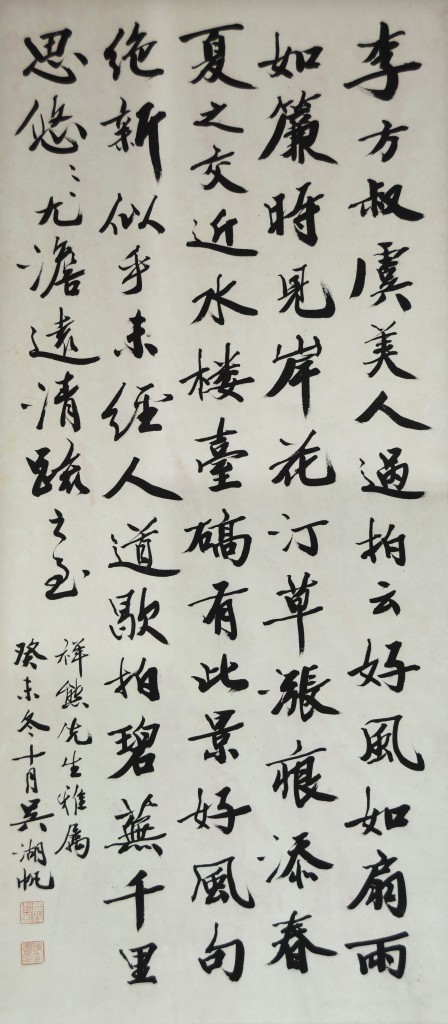 李方叔虞美人過拍云好風如扇雨
如簾時見岸花汀草漲痕添春
夏之交近水楼臺碻有此景好風句
绝新似乎未經人道歇拍碧蕪千里
思悠〻尤澹遠清踈之至
祥熊先生雅属
癸未冬十月吴湖帆